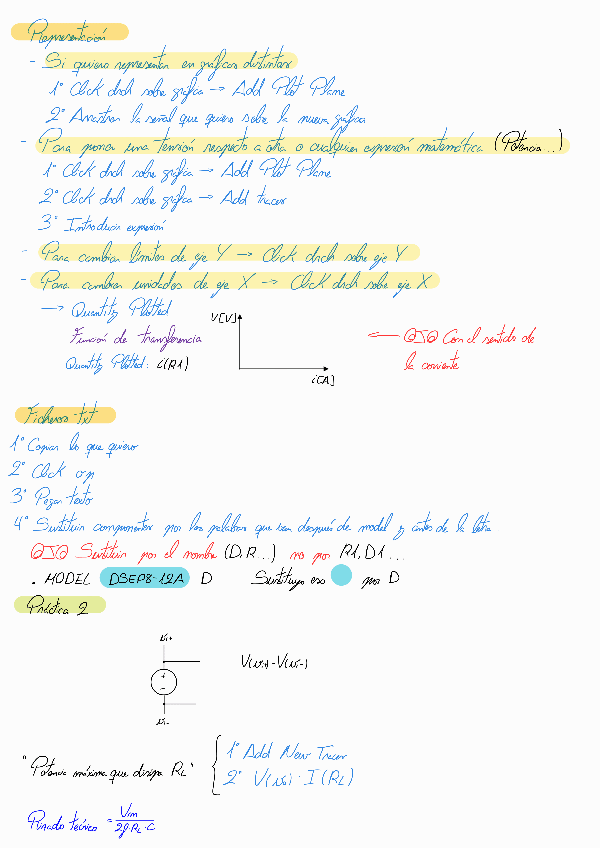 Representación
- Si quiero representar en gráficas distintas
1º Click drch sobre gráfica → Add Plot Plane
2º Arrastrar la señal que quiero sobre la nueva gráfica
- Para poner una tensión respecto a otra o cualquier expresión matemática (Potencia...)
1º Click drch sobre gráfica → Add Plot Plane
2º Click drch sobre gráfica → Add tracer
3º Introducir expresión
- Para cambiar límites de eje Y → Click drch sobre eje Y
- Para cambiar unidades de eje X → Click drch sobre eje X
→ Quantity Plotted
Función de transferencia
Quantity Plotted: i(R1)
V[V]
i[A]
← OJO Con el sentido de
la corriente
Ficheros txt
1º Copiar lo que quiero
2º Click op
3º Pegar texto
4º Sustituir componentes por las palabras que van después de model y antes de la letra
OJO Sustituir por el nombre (D,R...) no por R1, D1...
. MODEL DSEP8-12A D Sustituyo eso por D
Práctica 2
Vi+
+
-
Vi-
V(Vi+)-V(Vi-)
"Potencia máxima que disipa RL"
1º Add New Tracer
2º V(vo) · I(RL)
Rizado teórico = Vm / 2f·RL·C